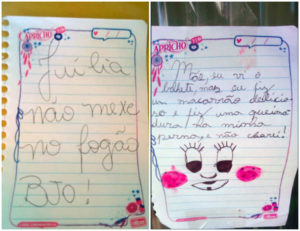 CAPRICHO
Júlia
não mexe
no fogão
BJO!
CAPRICHO
Mãe, eu vi o
bilhete, mas eu fiz
um macarrão delicio-
so e fiz uma queima
dura na minha
perna, e não chorei!